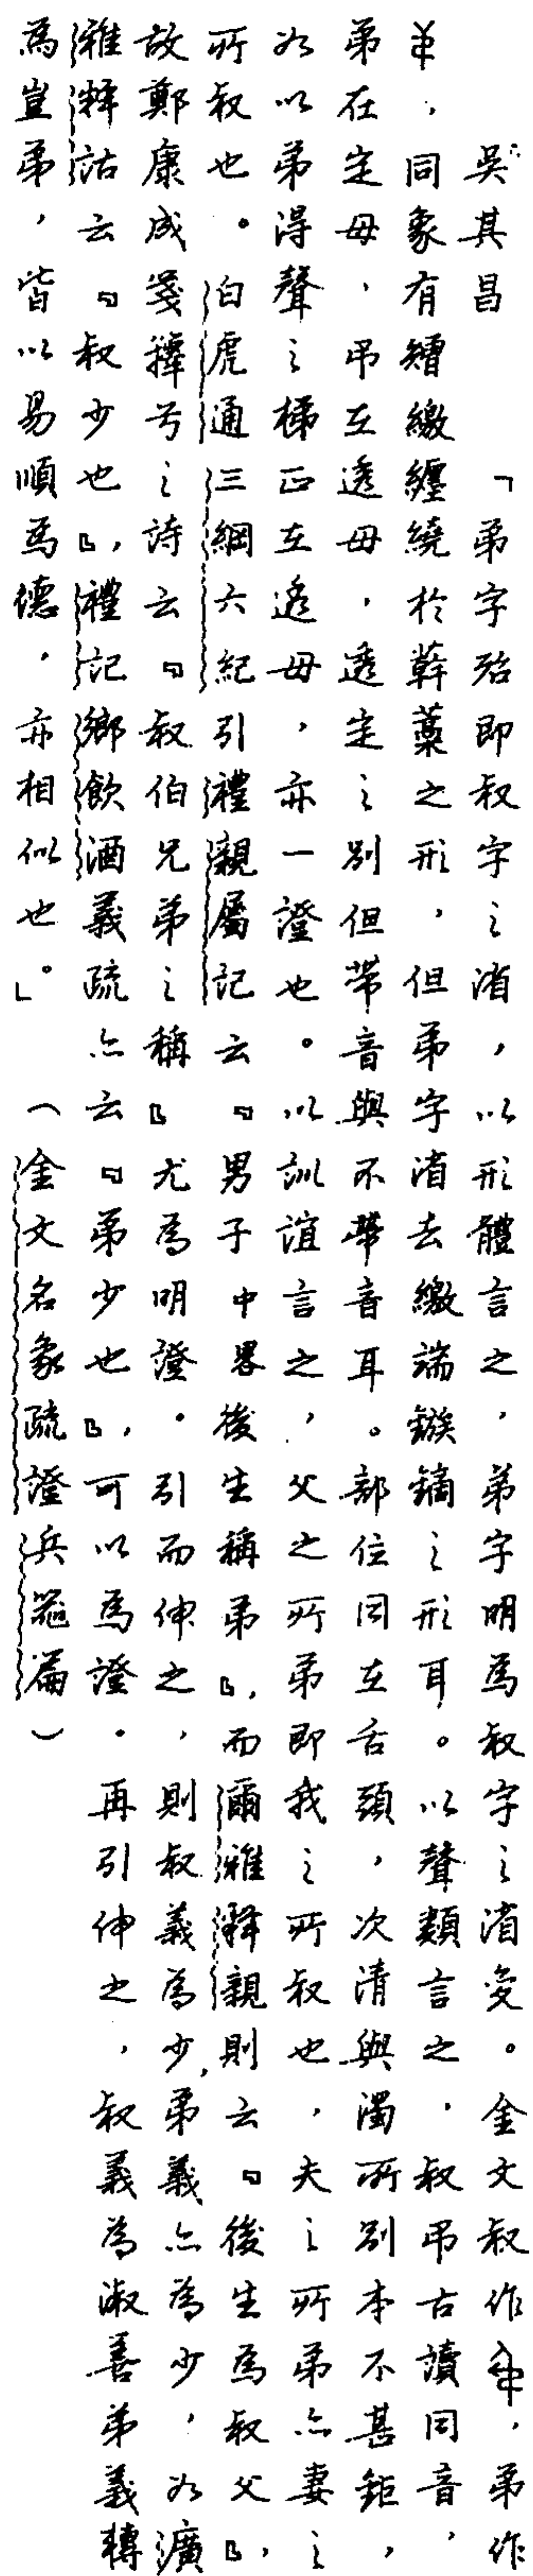 吳其昌　「弟字殆即叔字之渻，以形體言之，弟字明為叔字之渻変。金文叔作，弟作
，同象有矰繳纏繞於榦藁之形，但弟字渻去繳端鏃鏑之形耳。以聲類言之，叔弔古讀同音，
弟在定母，弔在透母，透定之別但帶音與不帶音耳。部位同在舌頭，次清與濁所別本不甚鉅，
如以弟得聲之梯正在透母，亦一證也。以訓誼言之，父之所弟即我之所叔也，夫之所弟亦妻之
所叔也。白虎通三綱六紀引禮親屬記云『男子中畧後生稱弟』，而爾雅釋親則云『後生為叔父』，
故鄭康成箋蘀兮之詩云『叔伯兄弟之稱』尤為明證。引而伸之，則叔義為少，弟義亦為少，如廣
雅釋詁云『叔少也』，禮記鄉飲酒義疏亦云『弟少也』，可以為證。再引伸之，叔義為淑善弟義轉
為豈弟，皆以易順為德，亦相似也。」（金文名象疏證兵器篇）